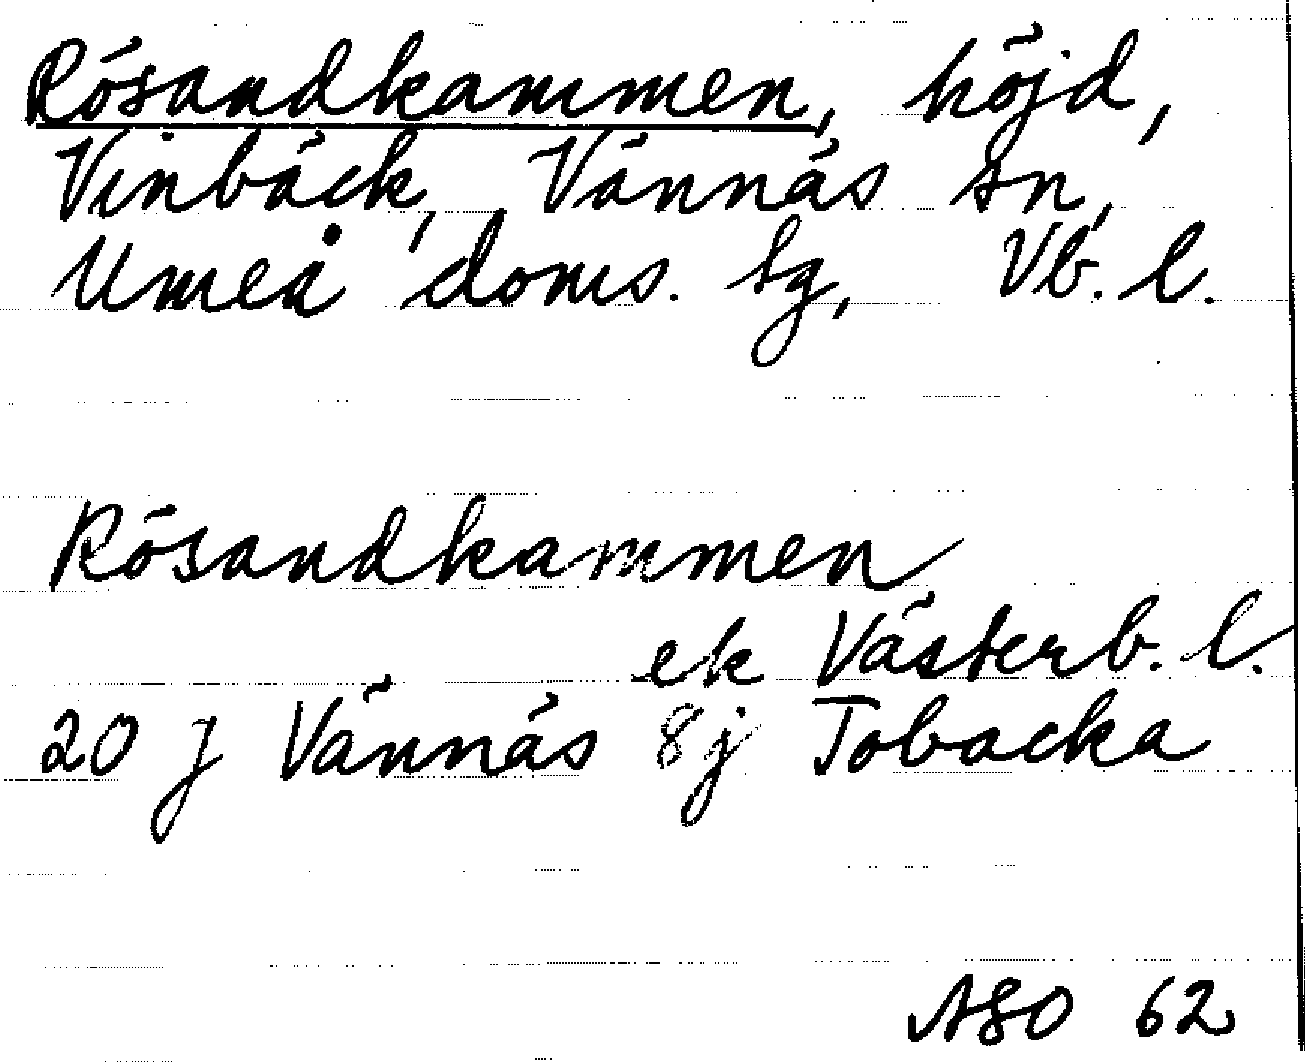 Rösandkammen, höjd,
Vinbäck, Vännäs sn,
Umeå doms. sg, Vb. l.
Rösandkammen
ek Västerb. l.
20 J Vännäs 8j Tobacka
ASO 62